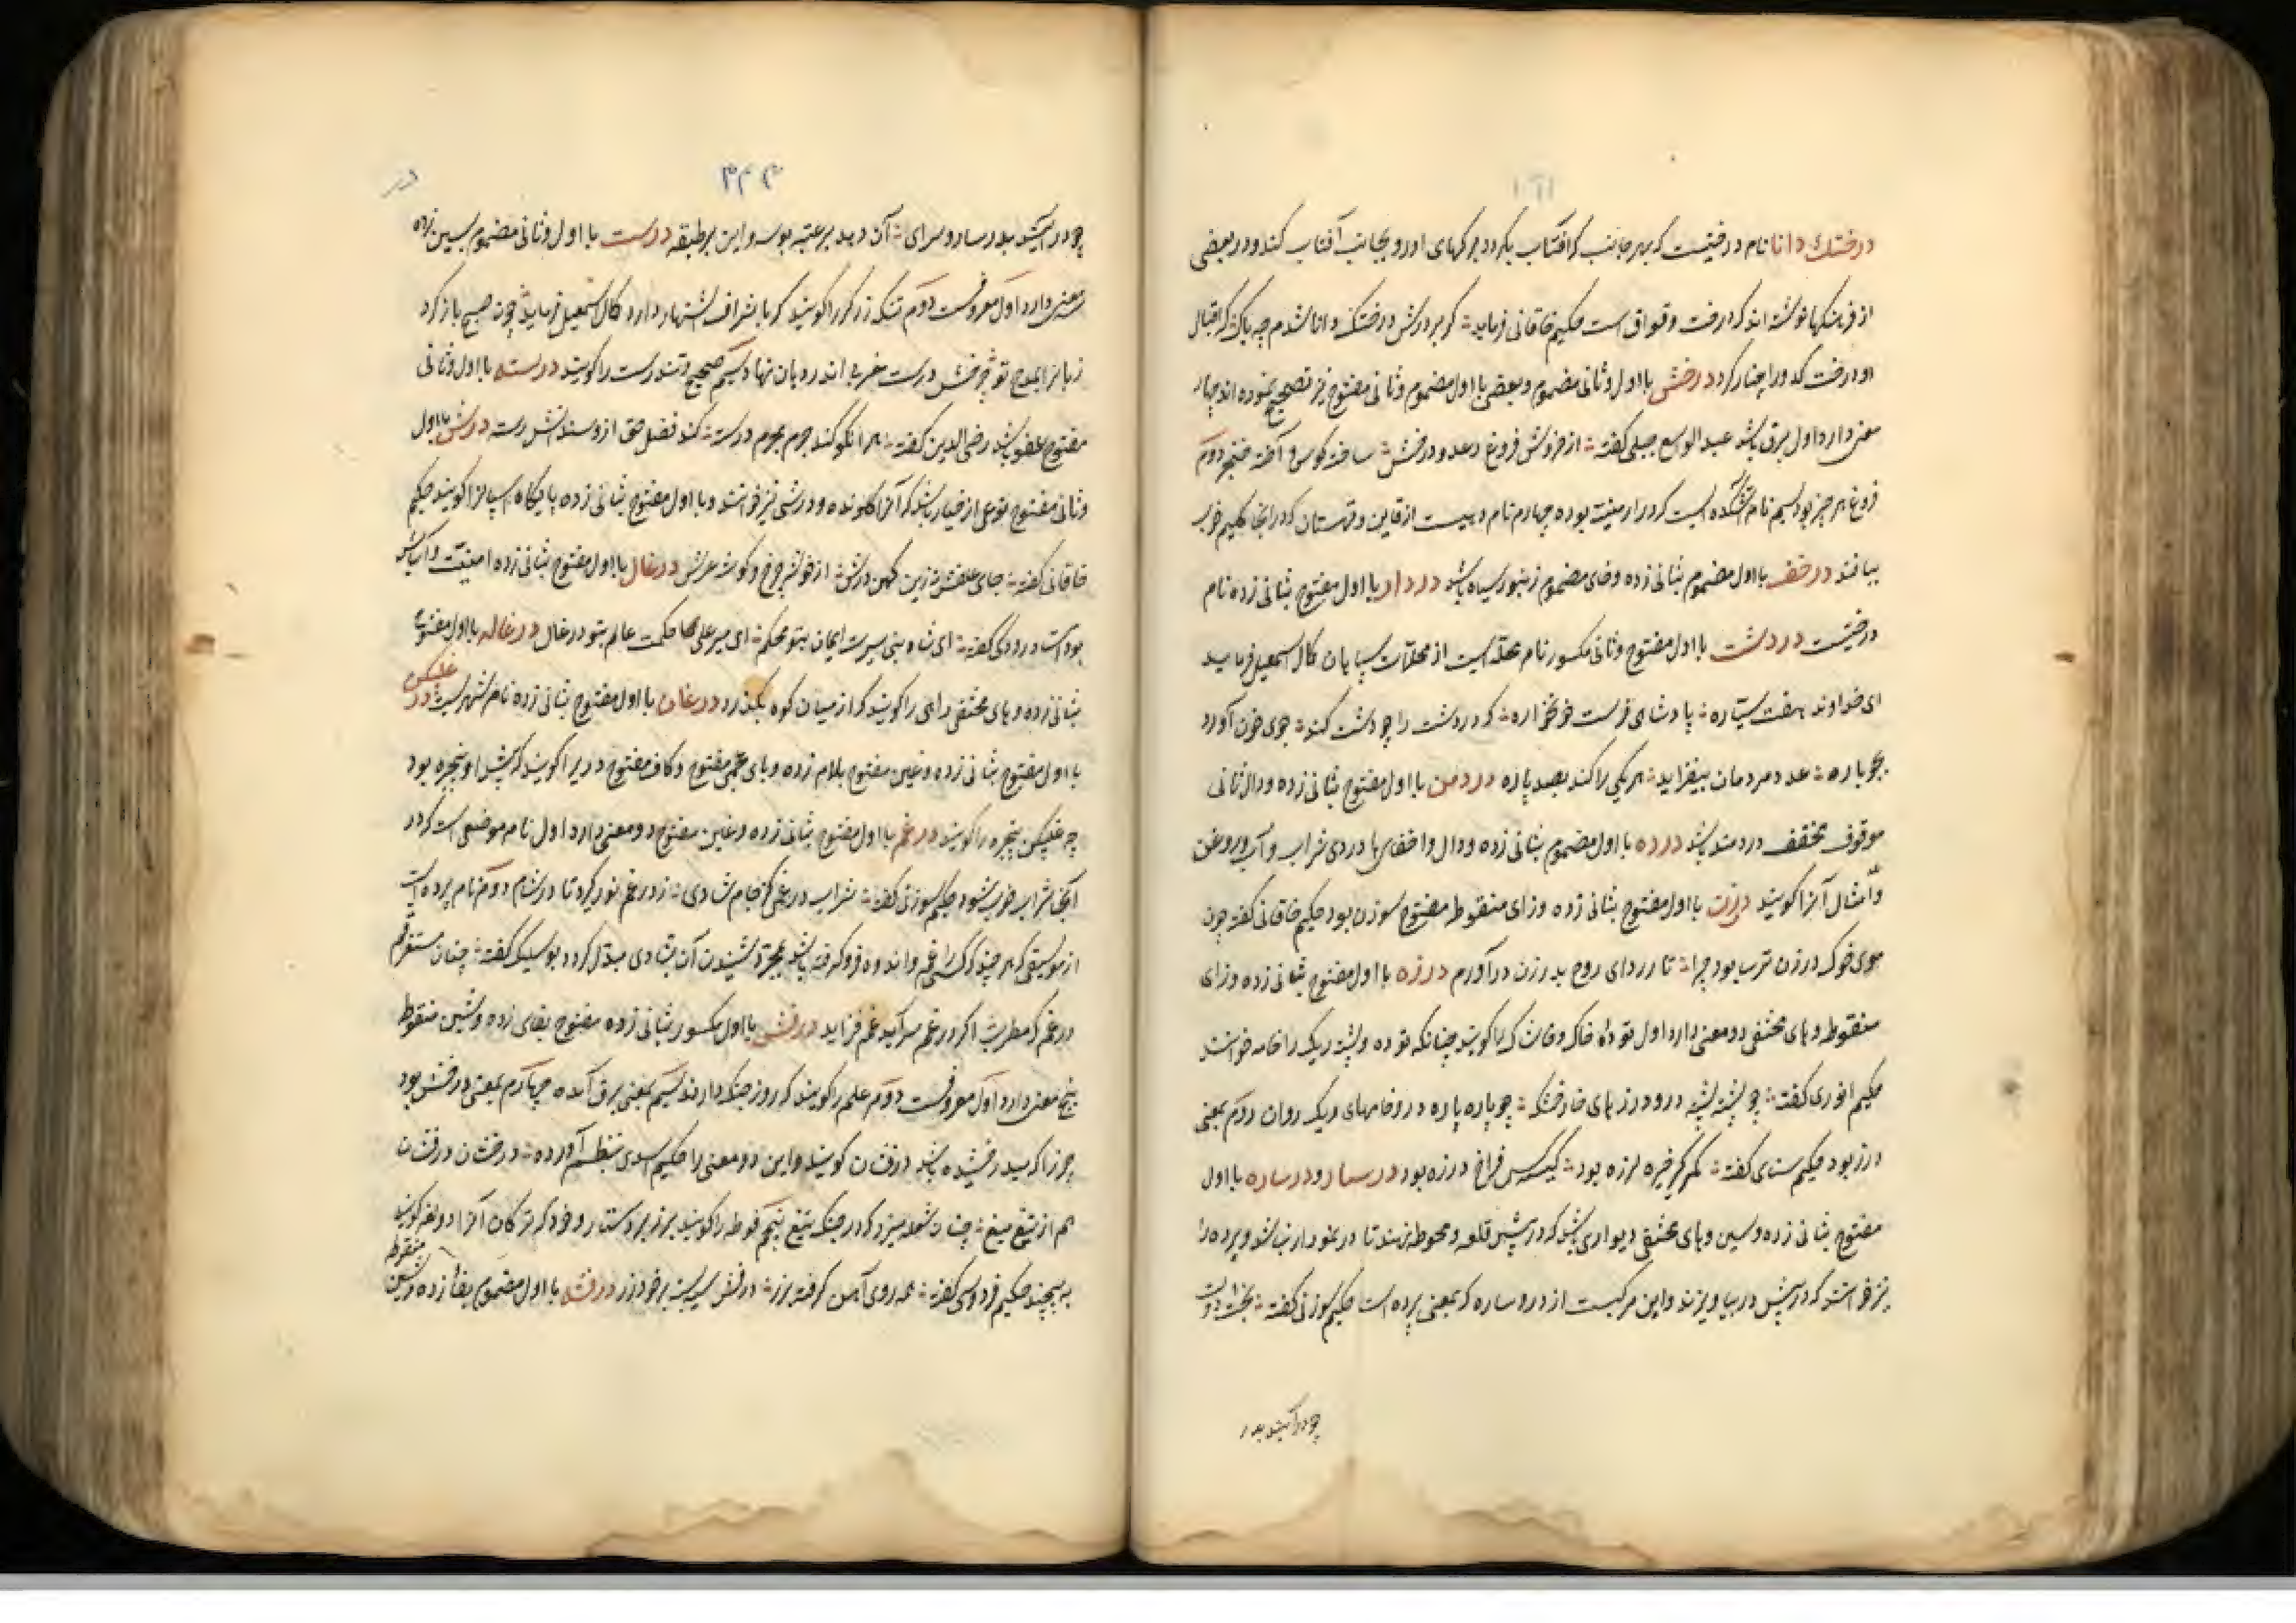 درختک دانا نام درختیست که بهر جانب که آفتاب بگردد برگهای او رو بجانب آفتاب کند و در بعضی
از فرهنگها نوشته اند که درخت وقواق است حکیم خاقانی فرماید ؛ گر بر درش درختک دانا شدم چه باک کز اقبال
او درخت کدو را چنار کرد درخش با اول و ثانی مضموم و بعضی با اول مضموم و ثانی مفتوح نیز تصحیح نموده اند چهار
معنی دارد اول برق باشد عبد الواسع جبلی گفته ؛ از خروش فروغ رعد و درخش ؛ ساخته کوس و آخته خنجر دوم
فروغ هر چیز بود سیم نام آتشکده است که در ارمنیه بوده چهارم نام دهیست از قاین و قهستان که در انجا گلیم خوب
ببافند درخف با اول مضموم بثانی زده و خای مضموم زنبور سیاه باشد دردار با اول مفتوح بثانی زده نام
درختیست دردشت با اول مفتوح و ثانی مکسور نام محله ایست از محلات سپاهان کمال اسمعیل فرماید
ای خداوند هفت سیاره ؛ پادشاهی فرست خونخواره ؛ که دردشت را چو دشت کند ؛ جوی خون آورد
بجوباره ؛ عدد مردمان بیفزاید ؛ هر یکی را کند بصد پاره دردمن با اول مفتوح بثانی زده و دال ثانی
موقوف مخفف دردمند باشد درده با اول مضموم بثانی زده و دال و اخفای ها دردی شراب و آب و روغن
و امثال آنرا گویند درزن با اول مفتوح بثانی زده و زای منقوطه مفتوح سوزن بود حکیم خاقانی گفته چون
موی خوک در زن ترسا بود چرا ؛ تا ردای روح بدرزن درآورم درزه با اول مفتوح بثانی زده و زای
منقوطه و های مختفی دو معنی دارد اول توده خاک و خاشاک را گویند چنانکه توده و پشته ریگ را خامه خوانند
حکیم انوری گفته ؛ چو پشته پشته درو درزهای خار خشک ؛ چو پاره پاره درو خامهای ریگ روان دوم بمعنی
درز بود حکیم سنای گفته ؛ کم گیر خیره لرزه بود ؛ کیسش فراخ درزه بود درسار و درساره با اول
مفتوح بثانی زده و سین و های مختفی دیواری باشد که در پیش قلعه و محوطه بندند تا در نمودار نباشد و پرده را
نیز خوانند که در پیش در بیاویزند و این مرکبست از در و ساره که بمعنی پرده است حکیم سوزنی گفته ؛ بخت و دولت
چو درآیند بدر
۳۴۴
در
چو درآیند بدر سار و سرای ؛ آن دهد بر عتبه بوسه و این بر طبقه درست با اول و ثانی مضموم بسین زده
معنی دارد اول معروفست دوم تنکه زر را گویند که باشرفی اشتهار دارد کمال اسمعیل فرماید چون صبح باز کرد
زبانرا بمدح تو چرخش درست مغربی اندر دهان نهاد سیم صحیح و تندرست را گویند درسته با اول و ثانی
مفتوح عفو باشد رضی الدین گفته ؛ هر انکو کند جرم بجرم درسته کند فضل حق از وی سندش رسته درش با اول
و ثانی مفتوح نوعی از خیار باشد که آنرا کلونده و درشی نیز خوانند و با اول مفتوح بثانی زده پایگاه اسپانرا گویند حکیم
خاقانی گفته ؛ جای علفش زین کهن درش ؛ از خوشه چرخ و گوشه عرش درغال با اول مفتوح بثانی زده امنیت
بود استاد رودکی گفته ؛ ای شاه نبی سیرت ایمان بتو محکم ؛ ای میر علی حکمت عالم بتو درغال درغاله با اول مفتوح
بثانی زده و های مختفی راهی را گویند که از میان کوه بگذرد درغان با اول مفتوح بثانی زده نام شهریست درغلبکن
با اول مفتوح بثانی زده و غین مفتوح بلام زده و بای عجمی مفتوح و کاف مفتوح دریرا گویند که پیش او پنجره بود
چه غلبکن پنجره را گویند درغم با اول مفتوح بثانی زده و غین مفتوح دو معنی دارد اول نام موضعی است که در
آنجا شراب خوب شود حکیم سوزنی گفته ؛ شراب درغمی کز جام شادی ؛ ز درغم نور گیرد تا در شام دوم نام پرده است
از موسیقی که هر چند که کسی را غم و اندوه فرو گرفته باشد بمجرد شنیدن آن بشادی مبدل گردد بوسلیک گفته ؛ چنان مستغرقم
در غم که مطرب اگر درغم سراید غم فزاید درفش با اول مکسور بثانی زده مفتوح بفای زده و شین منقوط
پنج معنی دارد اول معروفست دوم علم را گویند که روز جنگ دارند سیم بمعنی برق آمده چهارم بمعنی درخش بود
چیز را که بدرخشیده باشد درفشان گویند و این دو معنی را حکیم اسدی بنظم آورده ؛ درخشان درفشان
هم از تیغ میغ ؛ چنان شعله میزد که در جنگ تیغ پنجم فوطه را گویند بر زبر دستار و خود که ترکان آنرا دولغه گویند
به پیچند حکیم فردوسی گفته ؛ همه روی آهن گرفته بزر ؛ درفش سیه بسته بر خود زر درفشه با اول مضموم بفا زده و شین
منقوط